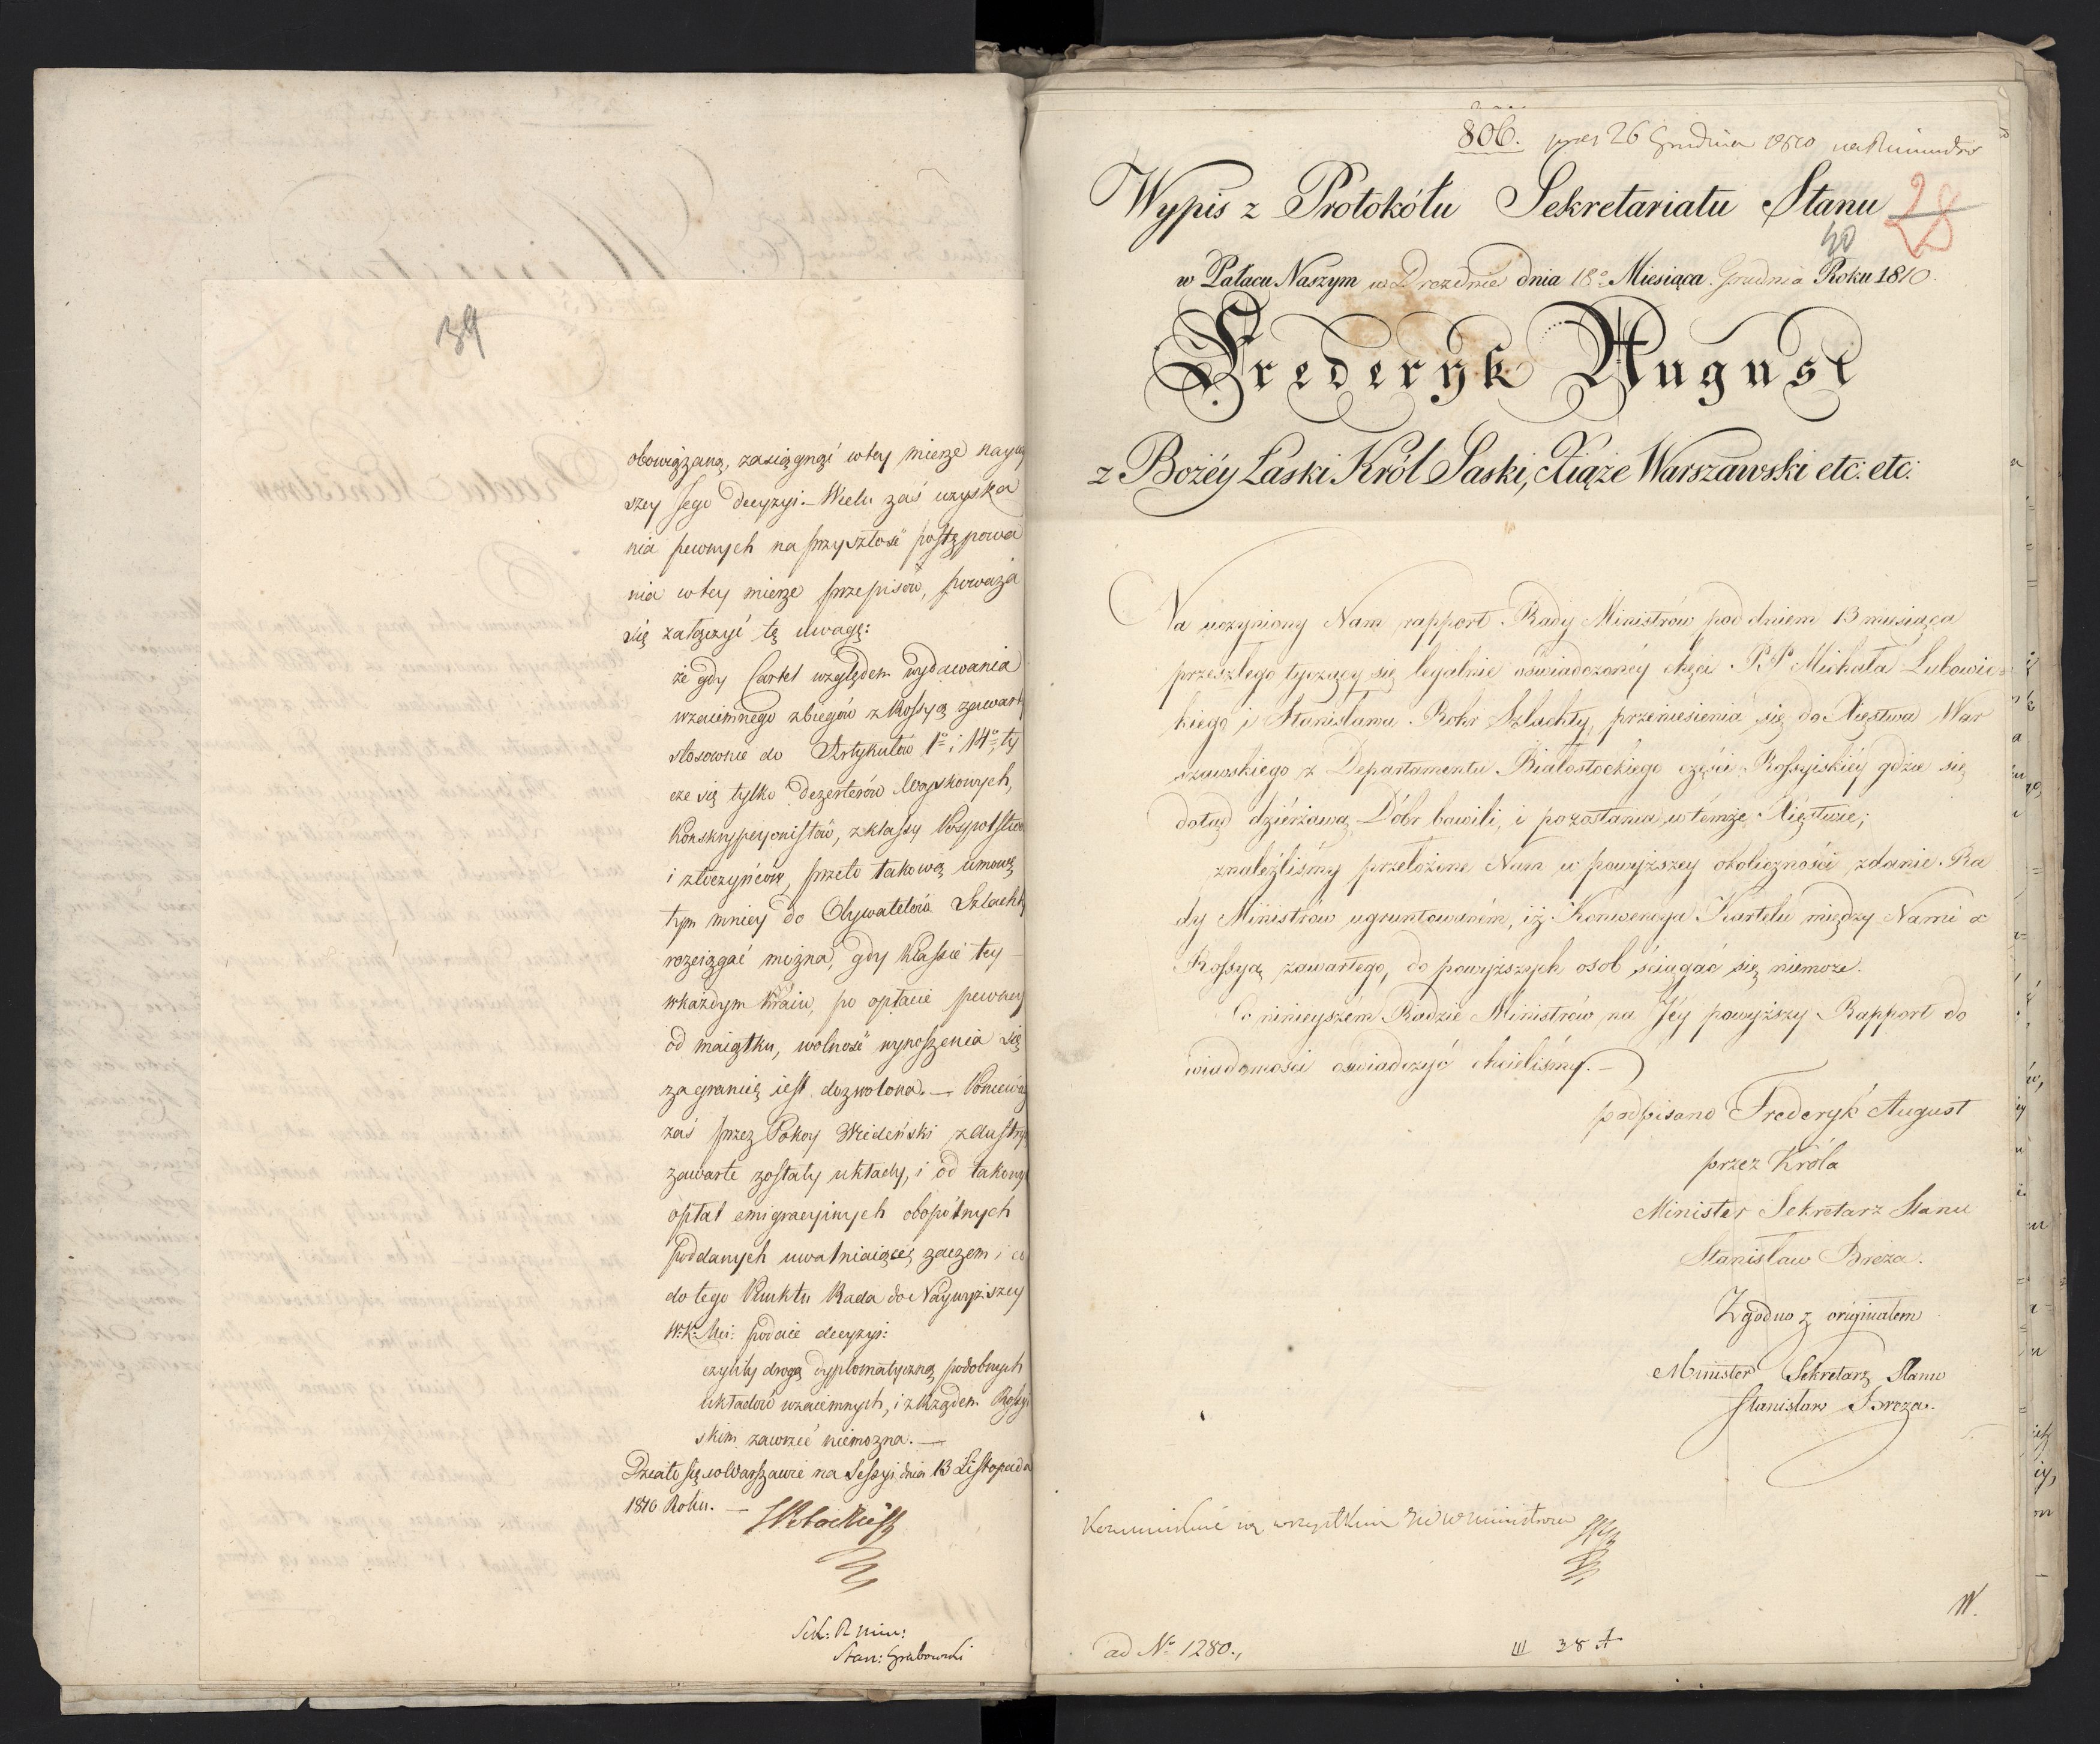 39
obowiązaną, zasięgnąć w tey mierze nayw
szey Jego decyzyi. – Wcelu zaś uzyska
nia pewnych na przyszłość postępowa
nia w tey mierze przepisów, poważa
się załączyć tę uwagę:
że gdy Cartel względem wydawania
wzaiemnego zbiegów z Rossyą zawart
stosownie do Artykułów 1º i 14º, ty
cze się tylko dezerterów Woyskowych,
Konskrypcyonistów, z klassy Pospolstwa
i złoczyńców, przeto takową umowę
tym mniey do Obywatelów Szlachty
rozciągać można, gdy klassie tey –
w każdym kraiu, po opłacie pewney
od maiątku, wolność wynoszenia się
za granicę iest dozwolona. – Poniewaz
zaś przez Pokoy Wiedeński z Austry
zawarte zostały układy, i od takowy
opłat emigracyinych obopólnych
poddanych uwalniaiące, zaczem i co
do tego Punktu Rada do Naywyższey
W: K: Mci: podaie decyzyi:
czyliby drogą dyplomatyczną podobnych
układów wzaiemnych, i z Rządem Rossyi
skim zawrzeć niemożna. –
Działo się w Warszawie na Sessyi dnia 13 Listopada
1810 Roku. –
Sek: R Min:
Stan: Grabowski
806. pres 26 Grudnia 1810
Wypis z Protokółu Sekretariatu Stanu
28
40
w Pałacu Naszym w Dreznie dnia 18º Miesiąca Grudnia Roku 1810.
Frederyk August
z Bożéy Łaski Król Saski, Xiąże Warszawski etc: etc:
Na uczyniony Nam rapport Rady Ministrów pod dniem 13 miesiąca
przeszłego tyczący się legalnie oświadczonéy chęci P.P. Michała Lubowic=
kiego i Stanisława Rohr Szlachty, przeniesienia się do Xięstwa War
szawskiego z Departamentu Białostockiego części Rossyiskiéy gdzie się
dotąd dzierżawą Dóbr bawili, i pozostania w témże Xięstwie;
znaleźliśmy przełożone Nam w powyższey okoliczności zdanie Ra
dy Ministrów ugruntowaném, iż Konwencya Kartelu między Nami a
Rossyą zawartego, do powyższych osob ściągać się niemoże.
Co ninieyszém Radzie Ministrów na Jéy powyższy Rapport do
wiadomości oświadczyć chcieliśmy. –
podpisano Frederyk August
przez Króla
Minister Sekretarz Stanu
Stanisław Breza.
Zgodno z originałem
Minister Sekretarz Stanu
Stanisław Breza.
ad Nº 1280.,
III 38 A
W.